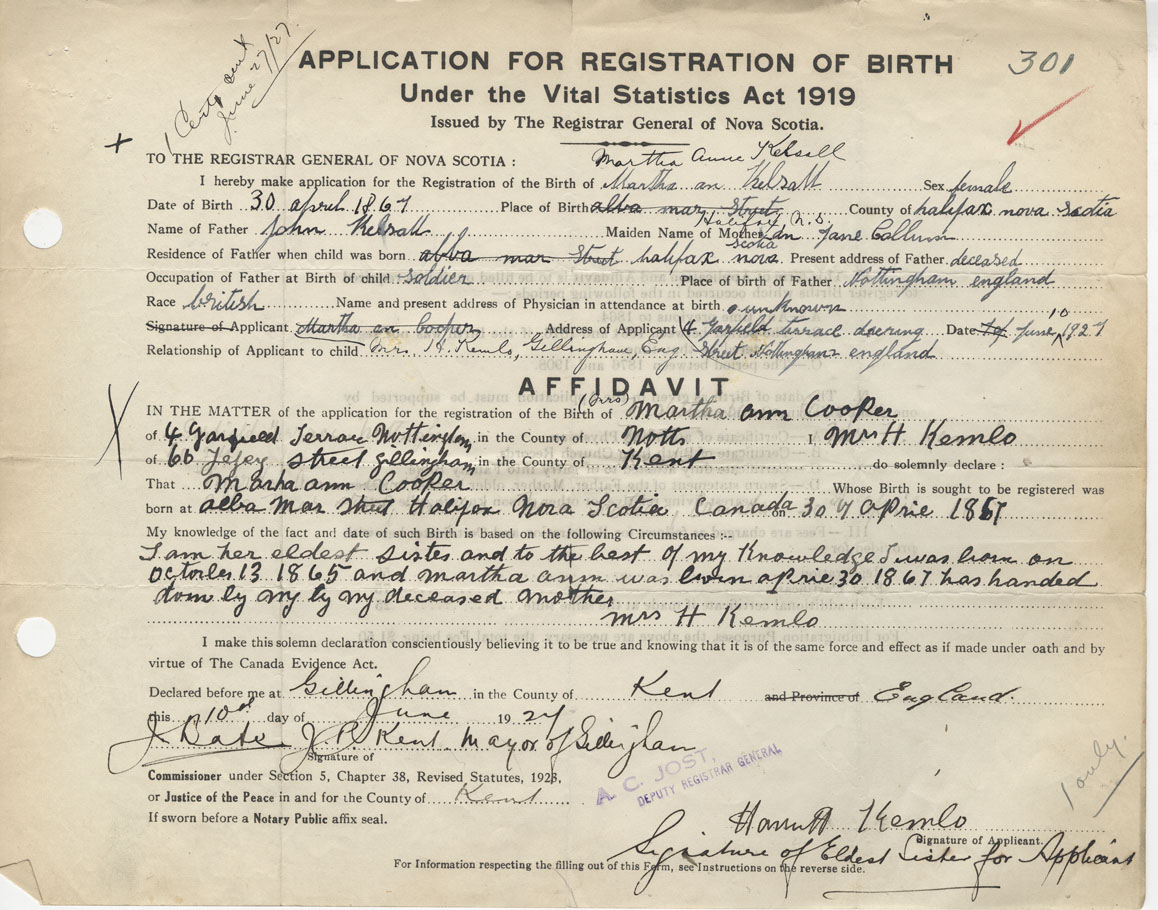 1 Certf sent
June 27/27.
APPLICATION FOR REGISTRATION OF BIRTH
301
Under the Vital Statistics Act 1919
Issued by The Registrar General of Nova Scotia.
TO THE REGISTRAR GENERAL OF NOVA SCOTIA :
Martha Anne Kelsall
I hereby make application for the Registration of the Birth of Martha an Kelsall Sex female
Date of Birth 30 april 1867 Place of Birth alba mar Street County of halifax nova scotia
Halifax, N.S.
Name of Father John Kelsall Maiden Name of Mother an Jane Collum
Residence of Father when child was born abba mar Street halifax nova scotia Present address of Father deceased
Occupation of Father at Birth of child soldier Place of birth of Father Nottingham england
Race british Name and present address of Physician in attendance at birth unknown
Signature of Applicant Martha an cooper Address of Applicant 4 Garfield terrace deering Date June 10 1927
Relationship of Applicant to child Mrs. H. Kemlo, Gillingham, Eng. Street Nottingham england
AFFIDAVIT
IN THE MATTER of the application for the registration of the Birth of (Mrs) Martha ann Cooper
of 4 Garfield Terrace Nottingham in the County of Notts I Mrs H Kemlo
of 66 Street Gillingham in the County of Kent do solemnly declare :
That Martha ann Cooper Whose Birth is sought to be registered was
born at alba Mar Street Halifax Nova Scotia Canada on 30 of aprie 1867
My knowledge of the fact and date of such Birth is based on the following Circumstances :--
I am her eldest sister and to the best of my Knowledge I was born on
October 13 1865 and martha ann was born aprie 30 1867 has handed
down by my by my deceased mother
mrs H Kemlo
I make this solemn declaration conscientiously believing it to be true and knowing that it is of the same force and effect as if made under oath and by
virtue of The Canada Evidence Act.
Declared before me at Gillingham in the County of Kent and Province of England.
this 10th day of June 1927
J Bate J.P. Kent. Mayor of Gillingham
Signature of
Commissioner under Section 5, Chapter 38, Revised Statutes, 1923,
or Justice of the Peace in and for the County of Kent
If sworn before a Notary Public affix seal.
A. C. JOST,
DEPUTY REGISTRAR GENERAL
1 only.
Harriett Kemlo
Signature of Applicant.
Signature of Eldest Sister for Applicant
For Information respecting the filling out of this Form, see Instructions on the reverse side.